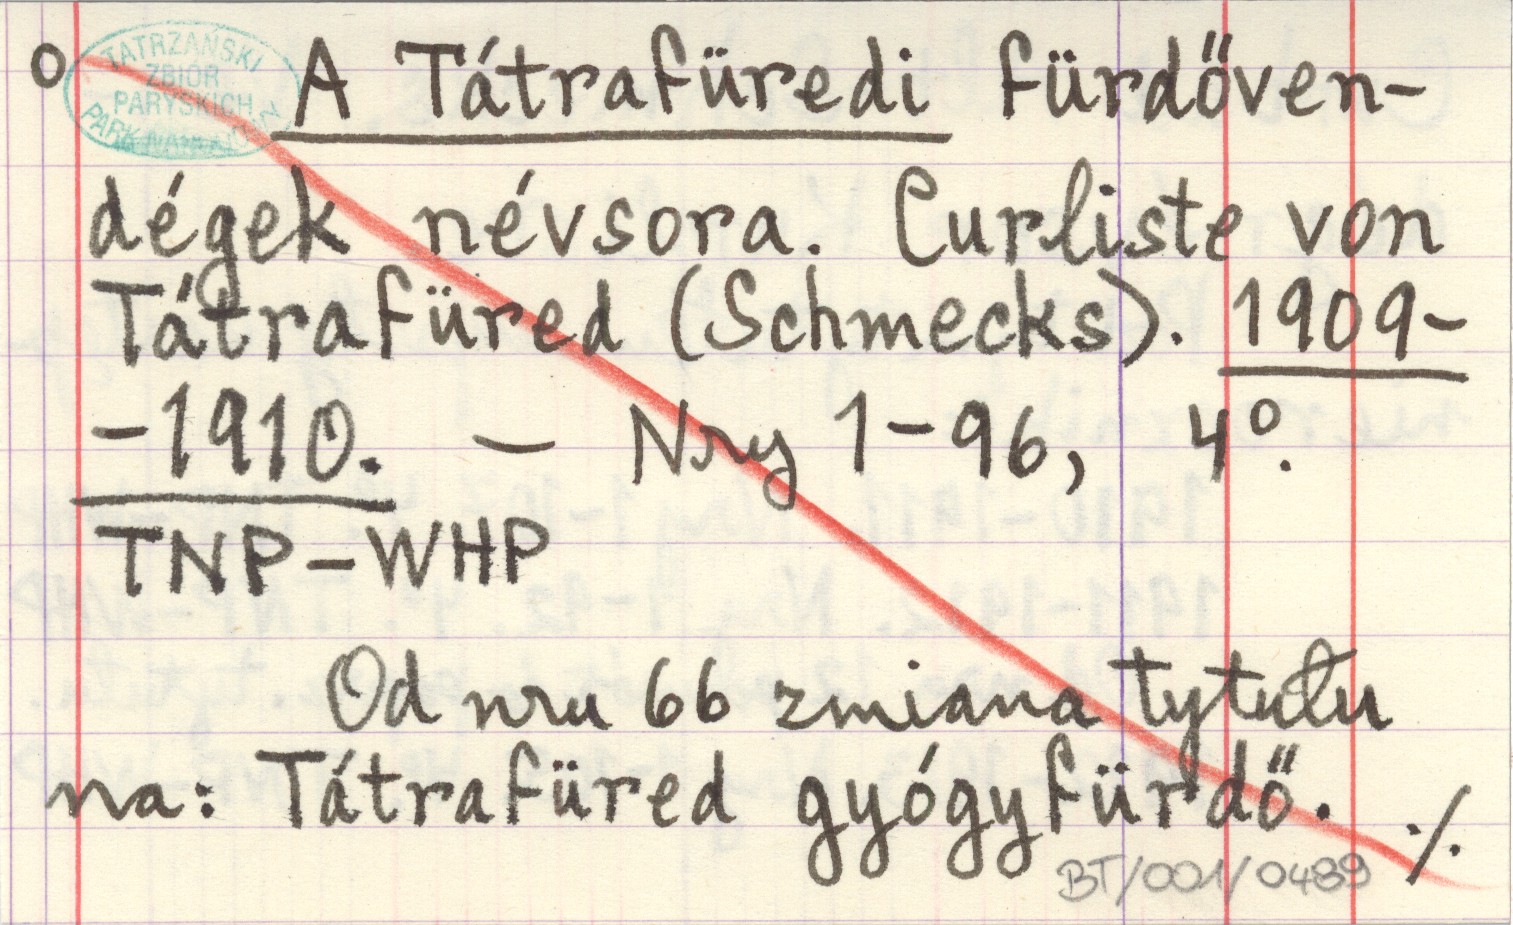 o A Tátrafüredi fürdőven-
TATRZAŃSKI
ZBIÓR
PARYSKICH
PARK
dégek névsora. Curliste von
Tátrafüred (Schmecks). 1909-
-1910. — Nry 1-96, 4°.
TNP-WHP
Od nru 66 zmiana tytułu
na: Tátrafüred gyógyfürdő. ./.
BT/001/0489